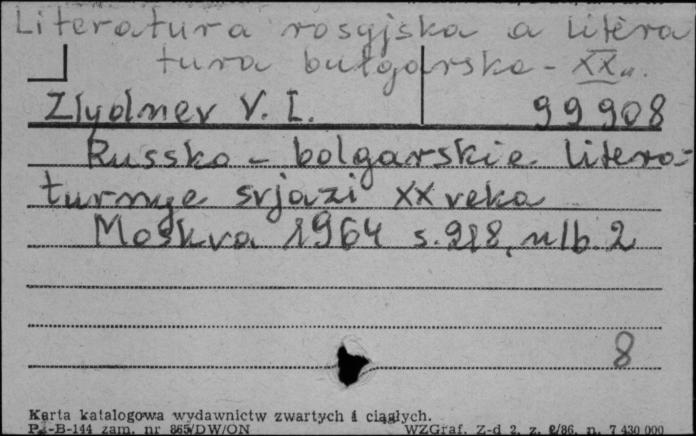 Literatura rosyjska a litera
tura bułgarska - XXw.
Zlydnev V. I. 99908
Russko - bolgarskie litera-
turnye svjazi XX veka
Moskva 1964 s. 218, nlb. 2
8
Karta katalogowa wydawnictw zwartych i ciągłych.
Pu-B-144 zam. nr 865/DW/ON WZGraf. Z-d 2, z. 2/86, n. 7 430 000